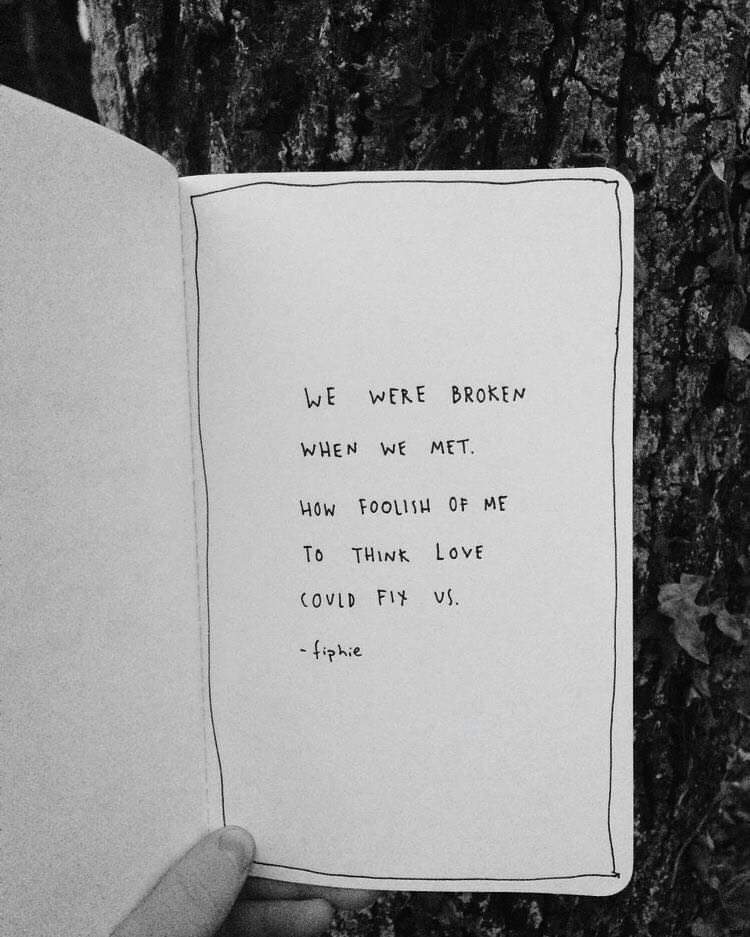 WE WERE BROKEN
WHEN WE MET.
HOW FOOLISH OF ME
TO THINK LOVE
COULD FIX US.
-fiphie